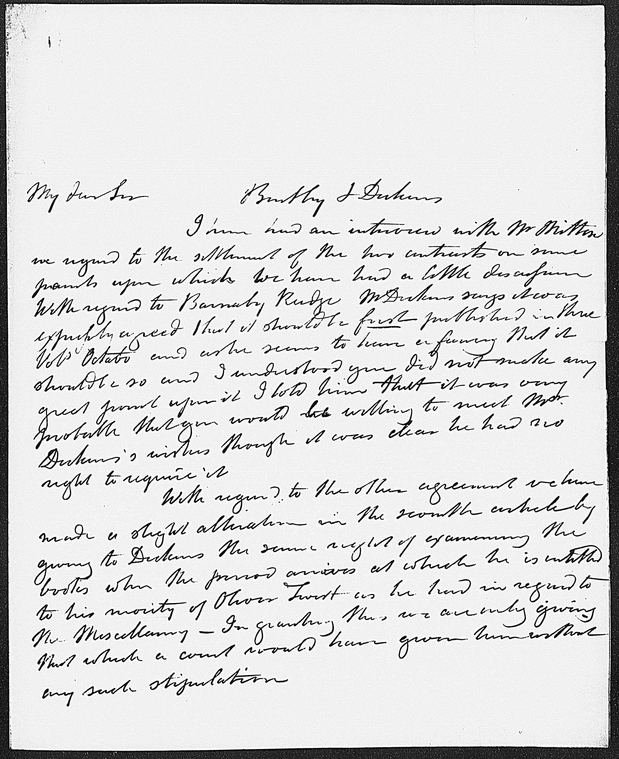 My dear Sir Bentley & Dickens
I have had an interview with Mr Mitton
in regard to the settlement of the two contracts on some
points upon which we have had a little discussion
With regard to Barnaby Rudge Mr Dickens says it was
expressly agreed that it should be first published in three
Vols Octavo and as he seems to have a fancy that it
should be so and I understood you did not make any
great point upon it I told him that it was very
probable that you would be willing to meet Mr
Dickens's wishes though it was clear he had no
right to require it
With regard to the other agreement we have
made a slight alteration in the seventh article by
giving to Dickens the same right of examining the
books when the period arrives at which he is entitled
to his moiety of Oliver Twist as he had in regard to
the Miscellany – In granting this we are only giving
that which a court would have given him without
any such stipulation